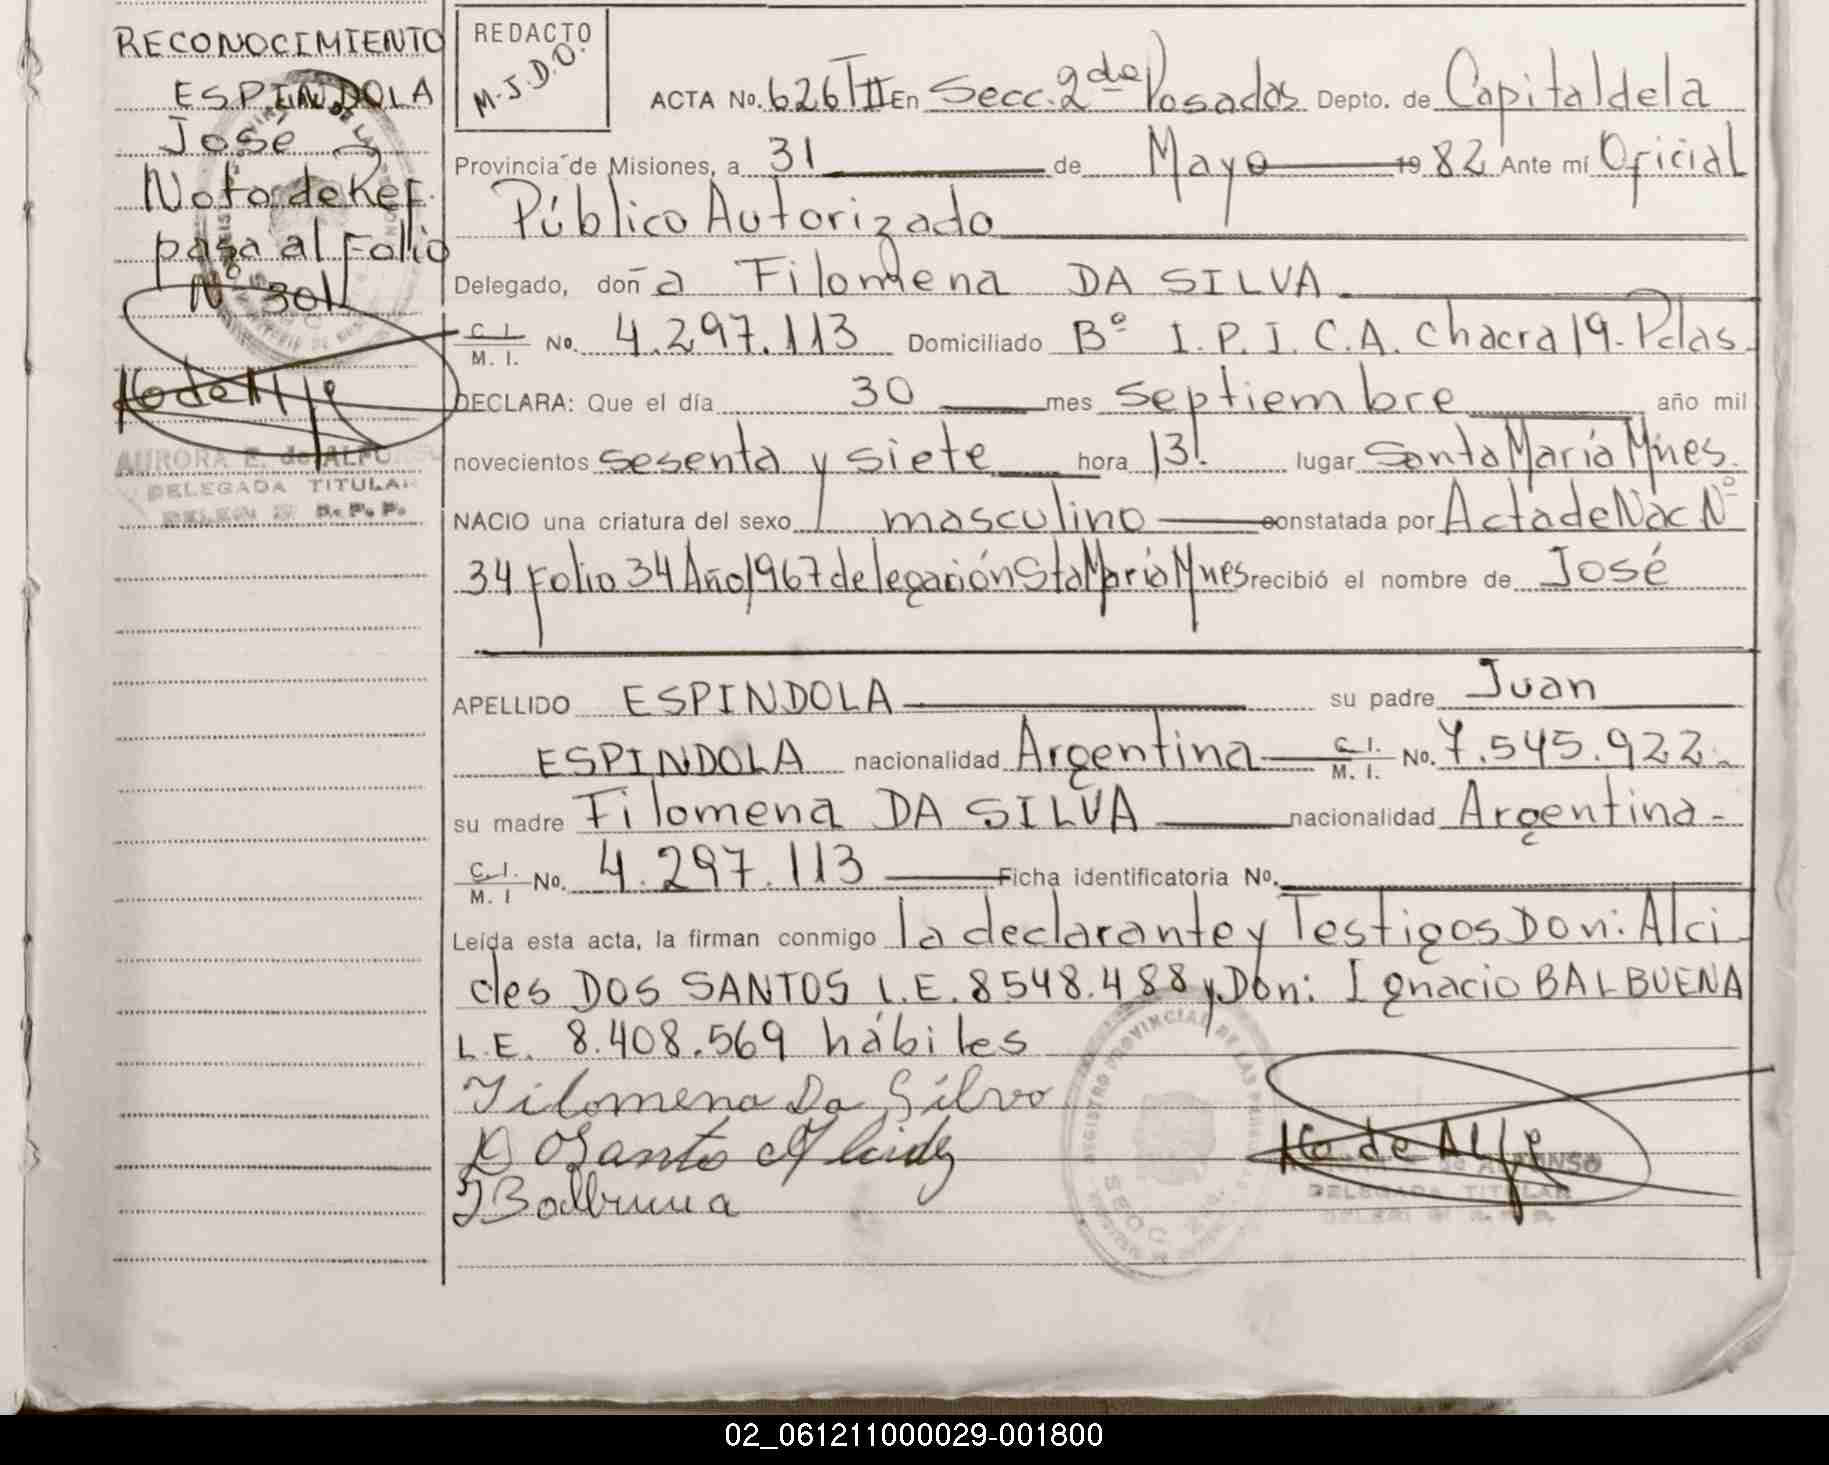 RECONOCIMIENTO
ESPINDOLA
José
Nota de Ref.
pasa al Folio
Nº 301
AURORA E. de ALFONSO
DELEGADA TITULAR
REDACTO
M.J.D.O.
ACTA No. 626 TII En Secc. 2da Posadas Depto. de Capital de la
Provincia de Misiones, a 31 de Mayo 1982 Ante mí Oficial
Público Autorizado
Delegado, doña Filomena DA SILVA
C. I. / M. I. No. 4.297.113 Domiciliado Bº I.P.I.C.A. chacra 19. Pdas.
DECLARA: Que el día 30 mes septiembre año mil
novecientos sesenta y siete hora 13. lugar Santa María Mnes.
NACIO una criatura del sexo masculino constatada por Acta de Nac Nº
34 Folio 34 Año 1967 delegación Sta María Mnes recibió el nombre de José
APELLIDO ESPINDOLA su padre Juan
ESPINDOLA nacionalidad Argentina C. I. / M. I. No. 7.545.922.
su madre Filomena DA SILVA nacionalidad Argentina-
C. I. / M. I No. 4.297.113 Ficha identificatoria No.
Leída esta acta, la firman conmigo la declarante y Testigos Don: Alci
des DOS SANTOS L.E. 8548.488 y Don: Ignacio BALBUENA
L.E. 8.408.569 hábiles
Filomena Da Silva
D Osanto Alcidz
I Balbuena
REGISTRO PROVINCIAL DE LAS PERSONAS
SECC 2da.
DELEGADA TITULAR
02_061211000029-001800